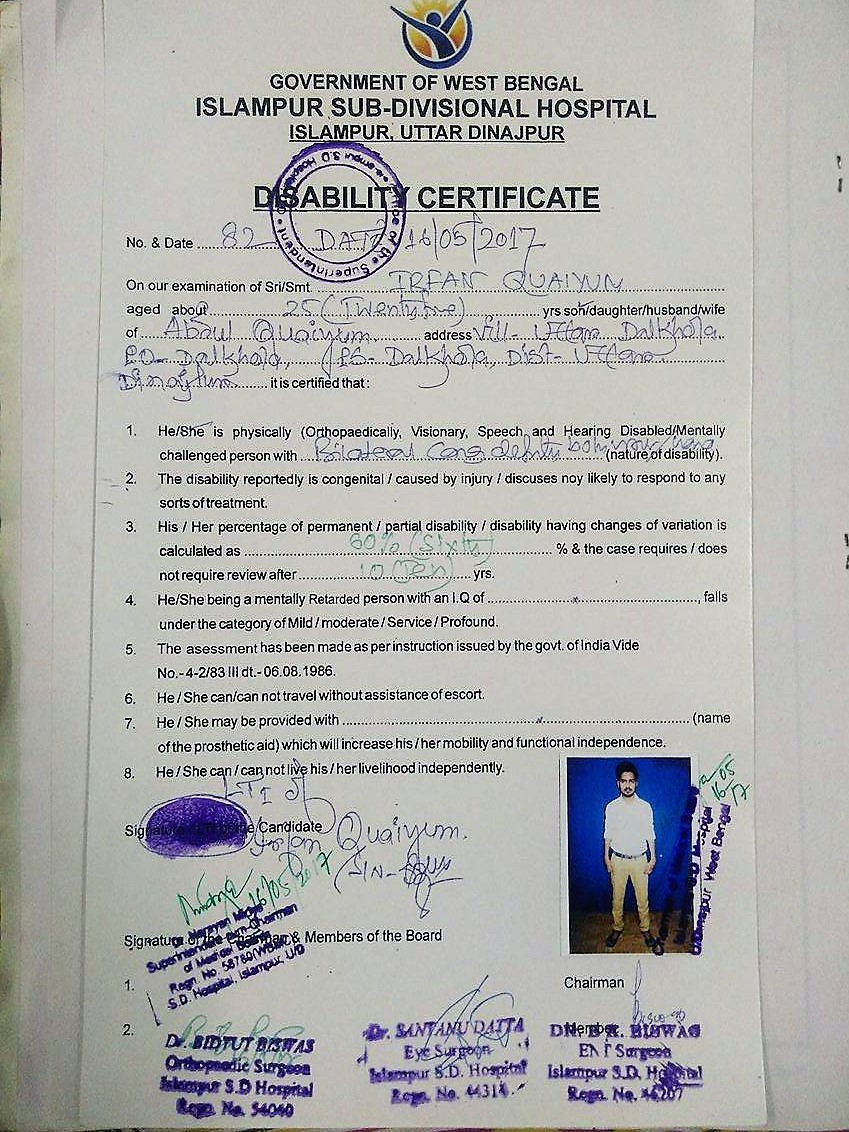 GOVERNMENT OF WEST BENGAL
ISLAMPUR SUB-DIVISIONAL HOSPITAL
ISLAMPUR, UTTAR DINAJPUR
DISABILITY CERTIFICATE
No. & Date ..... 82 DATE 16/05/2017
On our examination of Sri/Smt. IRFAN QUAIYUM
aged about 25 (Twentyfive) yrs son/daughter/husband/wife
of Abdul Quaiyum address Vill- Uttar Dalkhola
PO- Dalkhola, PS- Dalkhola, Dist- Uttar
Dinajpur it is certified that :
1. He/She is physically (Orthopaedically, Visionary, Speech and Hearing Disabled/Mentally
challenged person with Bilateral Cong (nature of disability).
2. The disability reportedly is congenital / caused by injury / discuses noy likely to respond to any
sorts of treatment.
3. His / Her percentage of permanent / partial disability / disability having changes of variation is
calculated as 60% (Sixty) % & the case requires / does
not require review after 10 (Ten) yrs.
4. He/She being a mentally Retarded person with an I.Q of x, falls
under the category of Mild / moderate / Service / Profound.
5. The asessment has been made as per instruction issued by the govt. of India Vide
No.-4-2/83 III dt.-06.08.1986.
6. He / She can/can not travel without assistance of escort.
7. He / She may be provided with (name
of the prosthetic aid) which will increase his / her mobility and functional independence.
8. He / She can / can not live his / her livelihood independently.
LTI of
Signature Candidate
Irfan Quaiyum.
16/05/2017
16/05/17
Signature of the Chairman & Members of the Board
Superintendent
of Medical Board
Regn. No. 58780 (WBMC)
S.D. Hospital, Islampur, U/D
S.D. Hospital
Uttar Dinajpur West Bengal
1.
Chairman
2.
Member
Dr. BIDYUT BISWAS
Orthopaedic Surgeon
Islampur S.D Hospital
Regn. No. 54040
Dr. SANTANU DATTA
Eye Surgeon
Islampur S.D. Hospital
Regn. No. 44314
DR. B.K. BISWAS
ENT Surgeon
Islampur S.D. Hospital
Regn. No. 46207